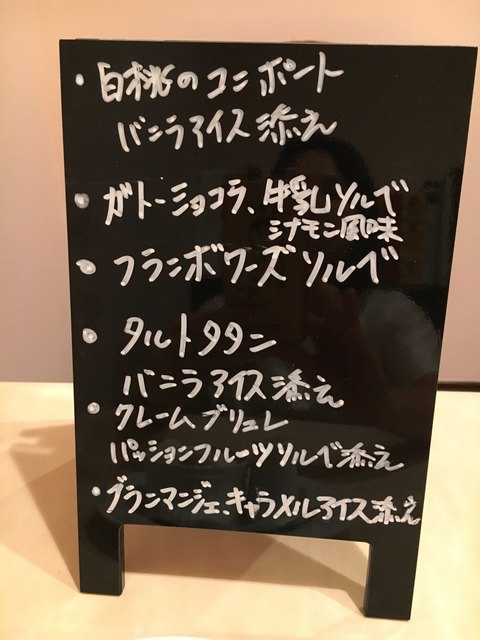 ・白桃のコンポート
バニラアイス添え
・ガトーショコラ、牛乳ソルベ
シナモン風味
・フランボワーズソルベ
・タルトタタン
バニラアイス添え
・クレームブリュレ
パッションフルーツソルベ添え
・ブランマンジェ、キャラメルアイス添え